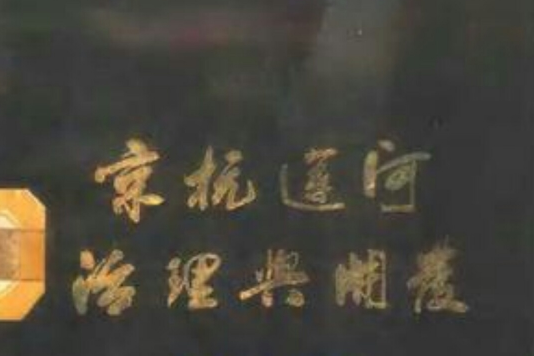 京杭運河
治理與開發